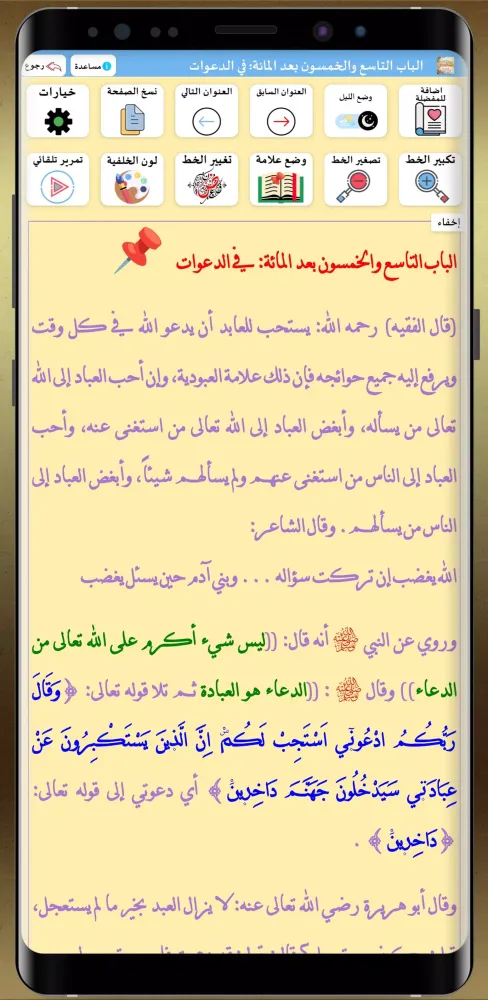 الباب التاسع والخمسون بعد المائة: في الدعوات
مساعدة
رجوع
اضافة للمفضلة
وضع الليل
العنوان السابق
العنوان التالي
نسخ الصفحة
خيارات
تكبير الخط
تصغير الخط
وضع علامة
تغيير الخط
لون الخلفية
تمرير تلقائي
إخفاء
الباب التاسع والخمسون بعد المائة: في الدعوات
(قال الفقيه) رحمه الله: يستحب للعابد أن يدعو الله في كل وقت
ويرفع إليه جميع حوائجه فإن ذلك علامة العبودية، وإن أحب العباد إلى الله
تعالى من يسأله، وأبغض العباد إلى الله تعالى من استغنى عنه، وأحب
العباد إلى الناس من استغنى عنهم ولم يسألهم شيئاً، وأبغض العباد إلى
الناس من يسألهم. وقال الشاعر:
الله يغضب إن تركت سؤاله ... وبني آدم حين يسئل يغضب
وروي عن النبي ﷺ أنه قال: ((ليس شيء أكرم على الله تعالى من
الدعاء)) وقال ﷺ : ((الدعاء هو العبادة ثم تلا قوله تعالى: ﴿وَقَالَ
رَبُّكُمُ ادْعُونِي أَسْتَجِبْ لَكُمْ إِنَّ الَّذِينَ يَسْتَكْبِرُونَ عَنْ
عِبَادَتِي سَيَدْخُلُونَ جَهَنَّمَ دَاخِرِينَ﴾ أي دعوتي إلى قوله تعالى:
﴿دَاخِرِينَ﴾ .
وقال أبو هريرة رضي الله تعالى عنه: لا يزال العبد بخير ما لم يستعجل،